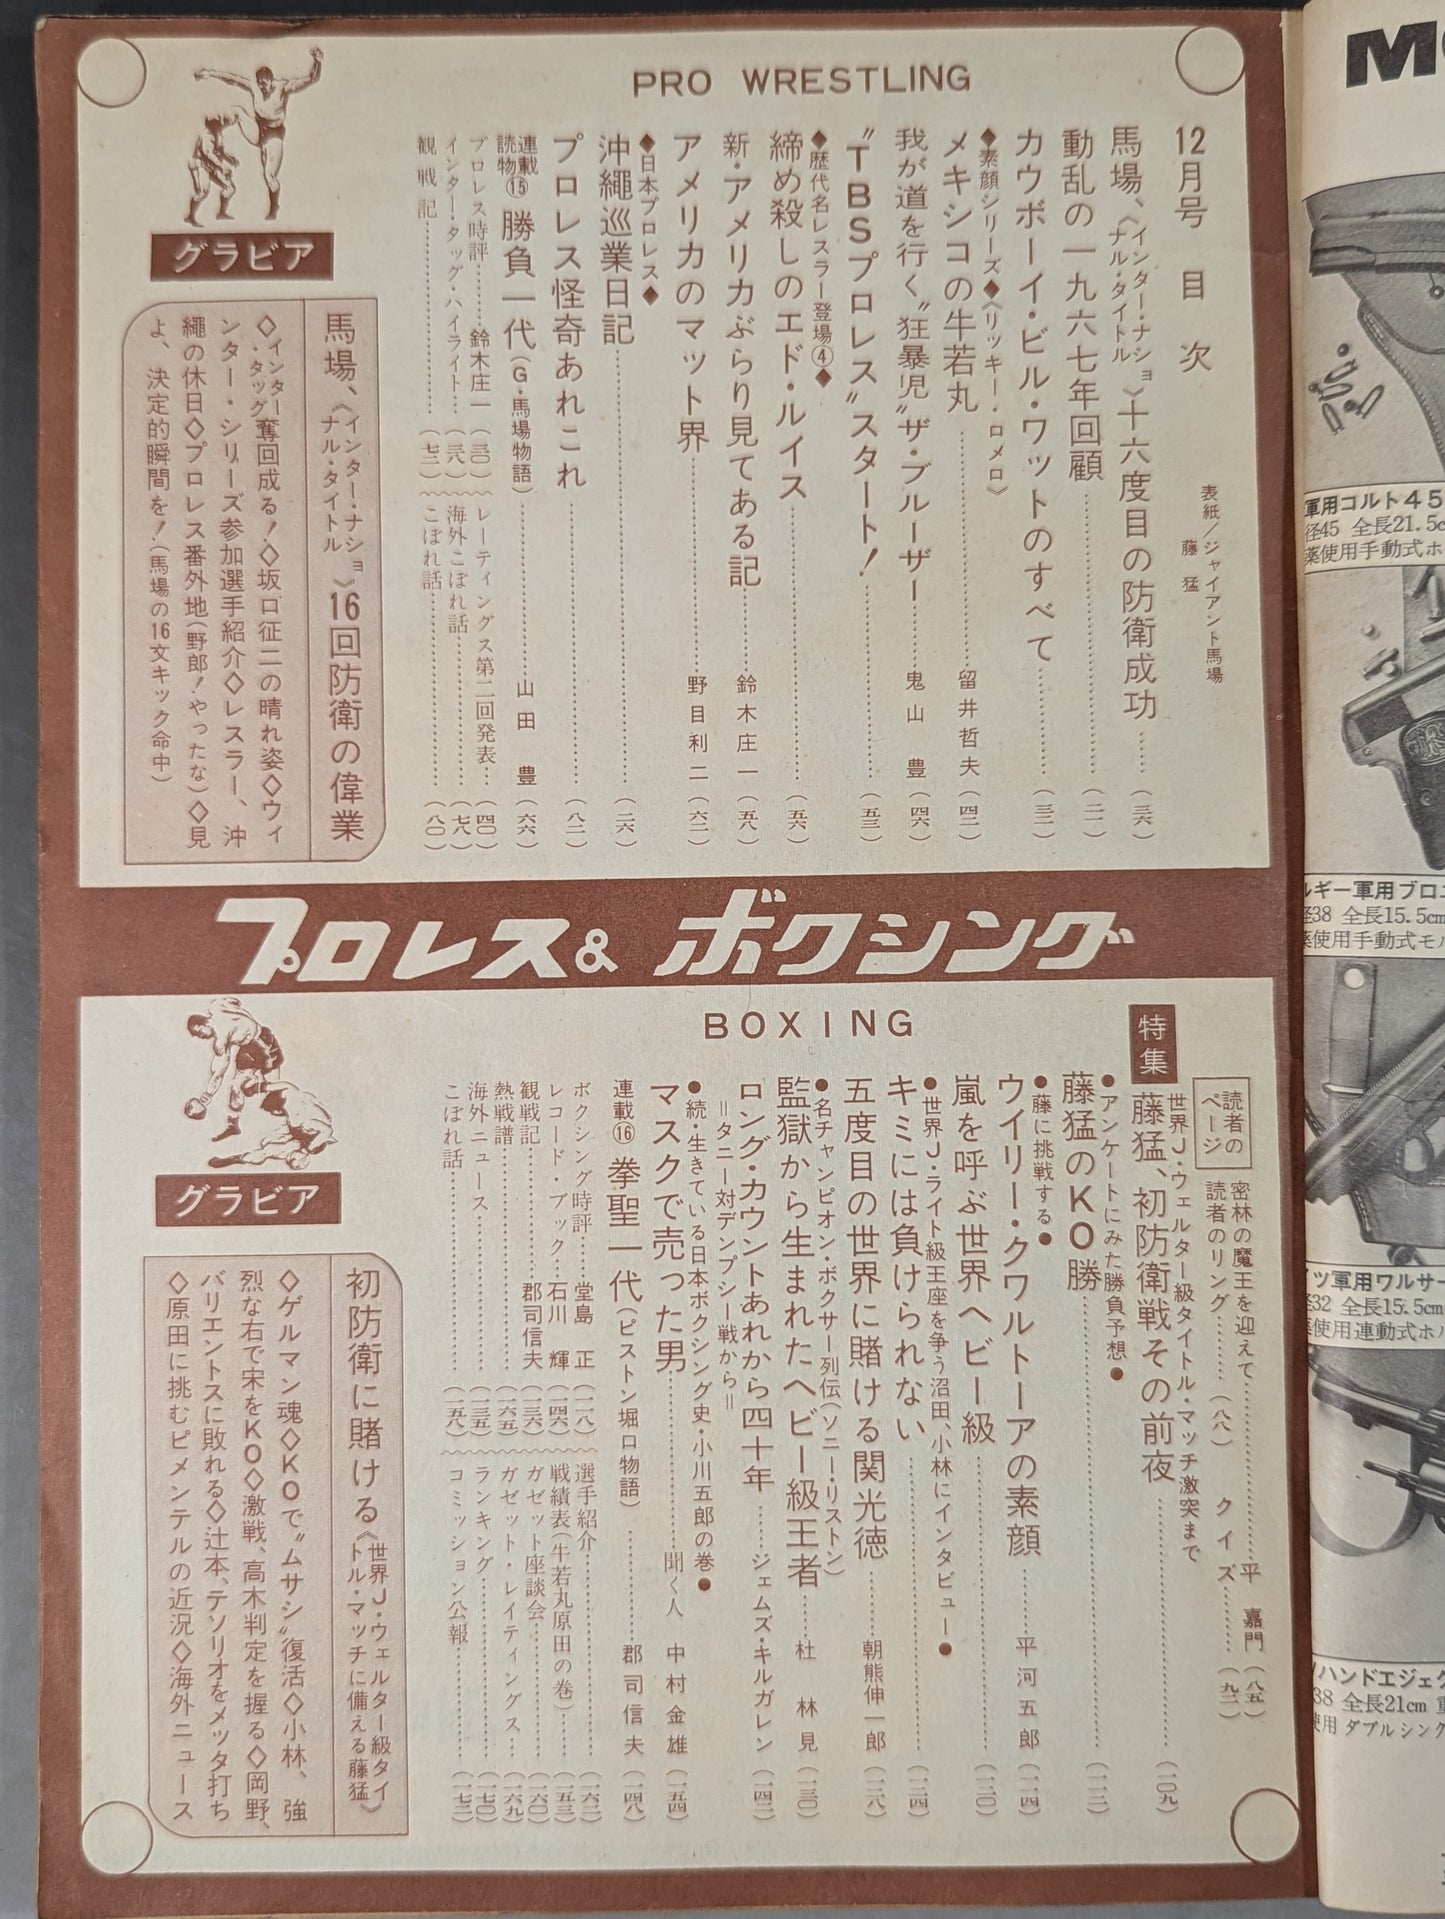 PRO WRESTLING
12月号 目次
表紙／ジャイアント馬場
藤猛
馬場、《インター・ナショナル・タイトル》十六度目の防衛成功……（三六）
動乱の一九六七年回顧……（二一）
カウボーイ・ビル・ワットのすべて……（三二）
◆素顔シリーズ◆《リッキー・ロメロ》
メキシコの牛若丸……留井哲夫（四二）
我が道を行く〝狂暴児〟ザ・ブルーザー……鬼山豊（四六）
〝TBSプロレス〟スタート！……（五三）
◆歴代名レスラー登場④◆
締め殺しのエド・ルイス……（五六）
新・アメリカぶらり見てある記……鈴木庄一（五八）
アメリカのマット界……野目利二（六二）
◆日本プロレス◆
沖縄巡業日記……（二六）
プロレス怪奇あれこれ……（八二）
連載読物⑮ 勝負一代（G・馬場物語）……山田豊（六六）
プロレス時評……鈴木庄一（三〇）
インター・タッグ・ハイライト……（三八）
観戦記……（七二）
レーティングス第二回発表…（四〇）
海外こぼれ話……（七八）
こぼれ話……（八〇）
グラビア
馬場、《インター・ナショナル・タイトル》16回防衛の偉業
◇インター・タッグ奪回成る！◇坂口征二の晴れ姿◇ウィ
ンター・シリーズ参加選手紹介◇レスラー、沖
縄の休日◇プロレス番外地（野郎！やったな）◇見
よ、決定的瞬間を！（馬場の16文キック命中）
プロレス＆ボクシング
BOXING
読者のページ
密林の魔王を迎えて……平嘉門（八五）
読者のリング……（八八）
クイズ……（九二）
特集
世界J・ウェルター級タイトル・マッチ激突まで
藤猛、初防衛戦その前夜……（一〇九）
●アンケートにみた勝負予想●
藤猛のKO勝……（一一二）
●藤に挑戦する●
ウイリー・クワルトーアの素顔……平河五郎（一一四）
嵐を呼ぶ世界ヘビー級……（一二〇）
●世界J・ライト級王座を争う沼田、小林にインタビュー●
キミには負けられない……（一二四）
五度目の世界に賭ける関光徳……朝熊伸一郎（一二八）
●名チャンピオン・ボクサー列伝（ソニー・リストン）
監獄から生まれたヘビー級王者……杜林見（一三〇）
ロング・カウントあれから四十年……ジェムズ・キルガレン（一四二）
＝タニー対デンプシー戦から＝
●続・生きている日本ボクシング史・小川五郎の巻●
マスクで売った男……聞く人 中村金雄（一五四）
連載⑯ 拳聖一代（ピストン堀口物語）……郡司信夫（一四八）
ボクシング時評……堂島正（一一八）
レコード・ブック…石川輝（一四六）
観戦記……郡司信夫（一三六）
熱戦譜……（一六五）
海外ニュース……（一三五）
こぼれ話……（一五八）
選手紹介……（一六二）
戦績表（牛若丸原田の巻）……（一五三）
ガゼット座談会……（一六〇）
ガゼット・レイティングス…（一六九）
ランキング……（一七〇）
コミッション公報……（一七二）
グラビア
初防衛に賭ける《世界J・ウェルター級タイトル・マッチに備える藤猛》
◇ゲルマン魂◇KOで〝ムサシ〟復活◇小林、強
烈な右で宋をKO◇激戦、高木判定を握る◇岡野、
バリエントスに敗れる◇辻本、テソリオをメッタ打ち
◇原田に挑むピメンテルの近況◇海外ニュース
軍用コルト45
径45 全長21.5c
薬使用手動式ホ
ルギー軍用ブロ
径38 全長15.5cm
薬使用手動式モ
ツ軍用ワルサー
径32 全長15.5cm
薬使用連動式ホ
ハンドエジェク
38 全長21cm 重
使用 ダブルシング